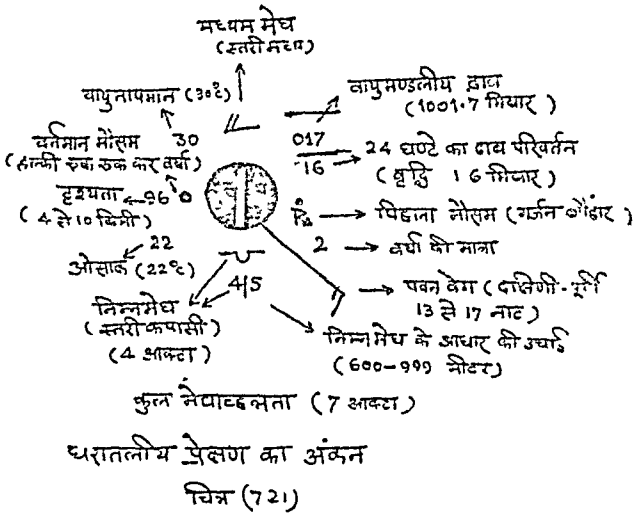 मध्यम मेघ
(स्तरी मध्य)
वायुतापमान (30°c)
वायुमण्डलीय दाब
(1001.7 मिबार)
वर्तमान मौसम 30
(हल्की रुक रुक कर वर्षा)
017
16
24 घण्टे का दाब परिवर्तन
(वृद्धि 16 मिबार)
दृश्यता 96
(4 से 10 किमी)
पिछला मौसम (गर्जन
22
ओसांक (22°c)
2 वर्षा की मात्रा
4/5
पवन वेग (दक्षिणी-पूर्वी
13 से 17 नाट)
निम्नमेघ
(स्तरी कपासी)
(4 आक्टा)
निम्नमेघ के आधार की उचाई
(600-999 मीटर)
कुल मेघाच्छन्नता (7 आक्टा)
धरातलीय प्रेक्षण का अंकन
चित्र (721)